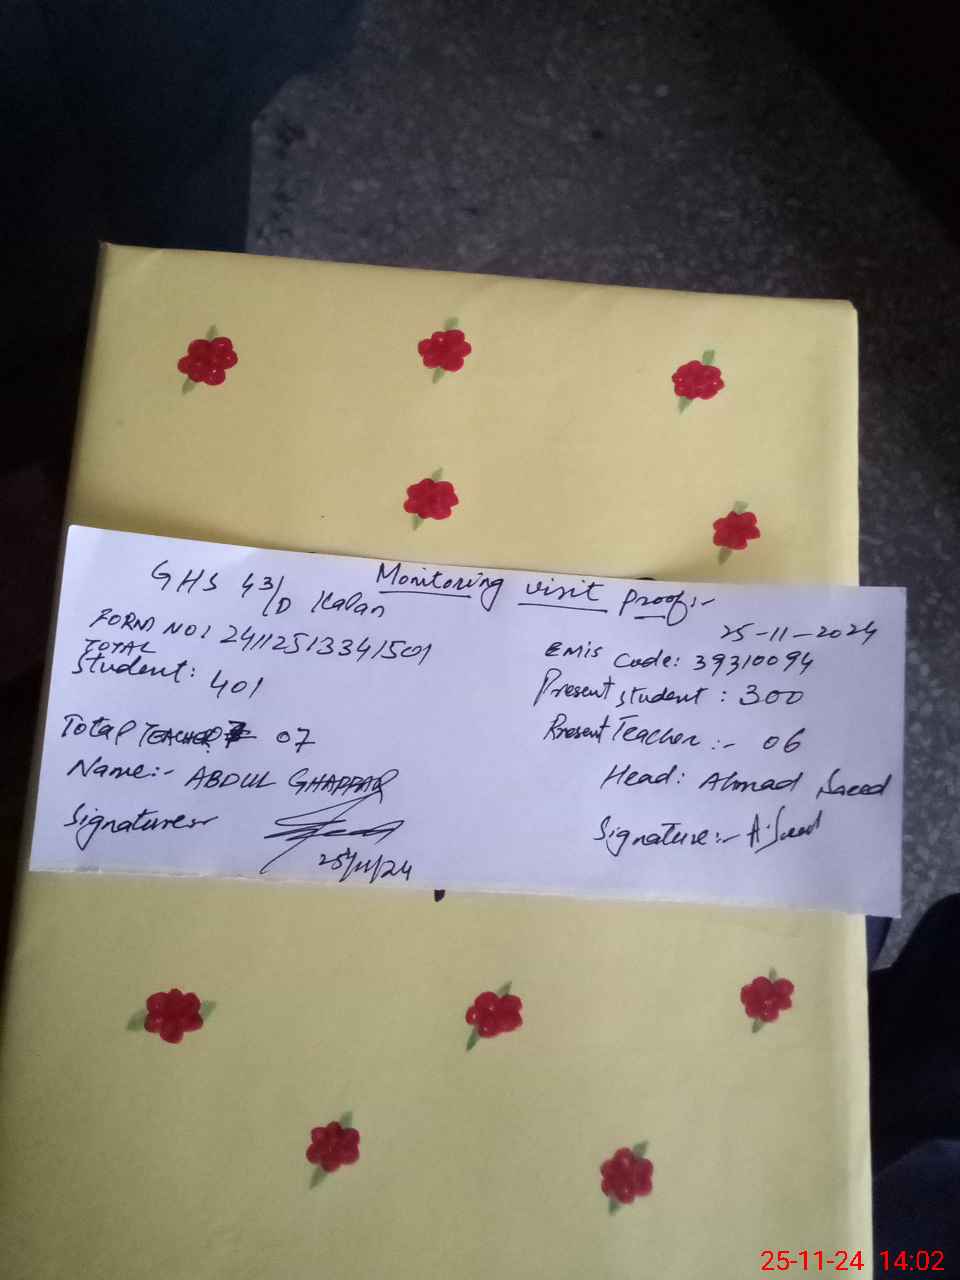 Monitoring visit proof:-
GHS 43/D Kalan
25-11-2024
FORM NO: 241125133415001
EMIS Code: 39310094
TOTAL
Student: 401
Present student : 300
Total TEACHER 07
Present Teacher :- 06
Name:- ABDUL GHAFFAR
Head: Ahmad Saeed
Signature:-
Signature:- A.Saeed
25/11/24
25-11-24 14:02